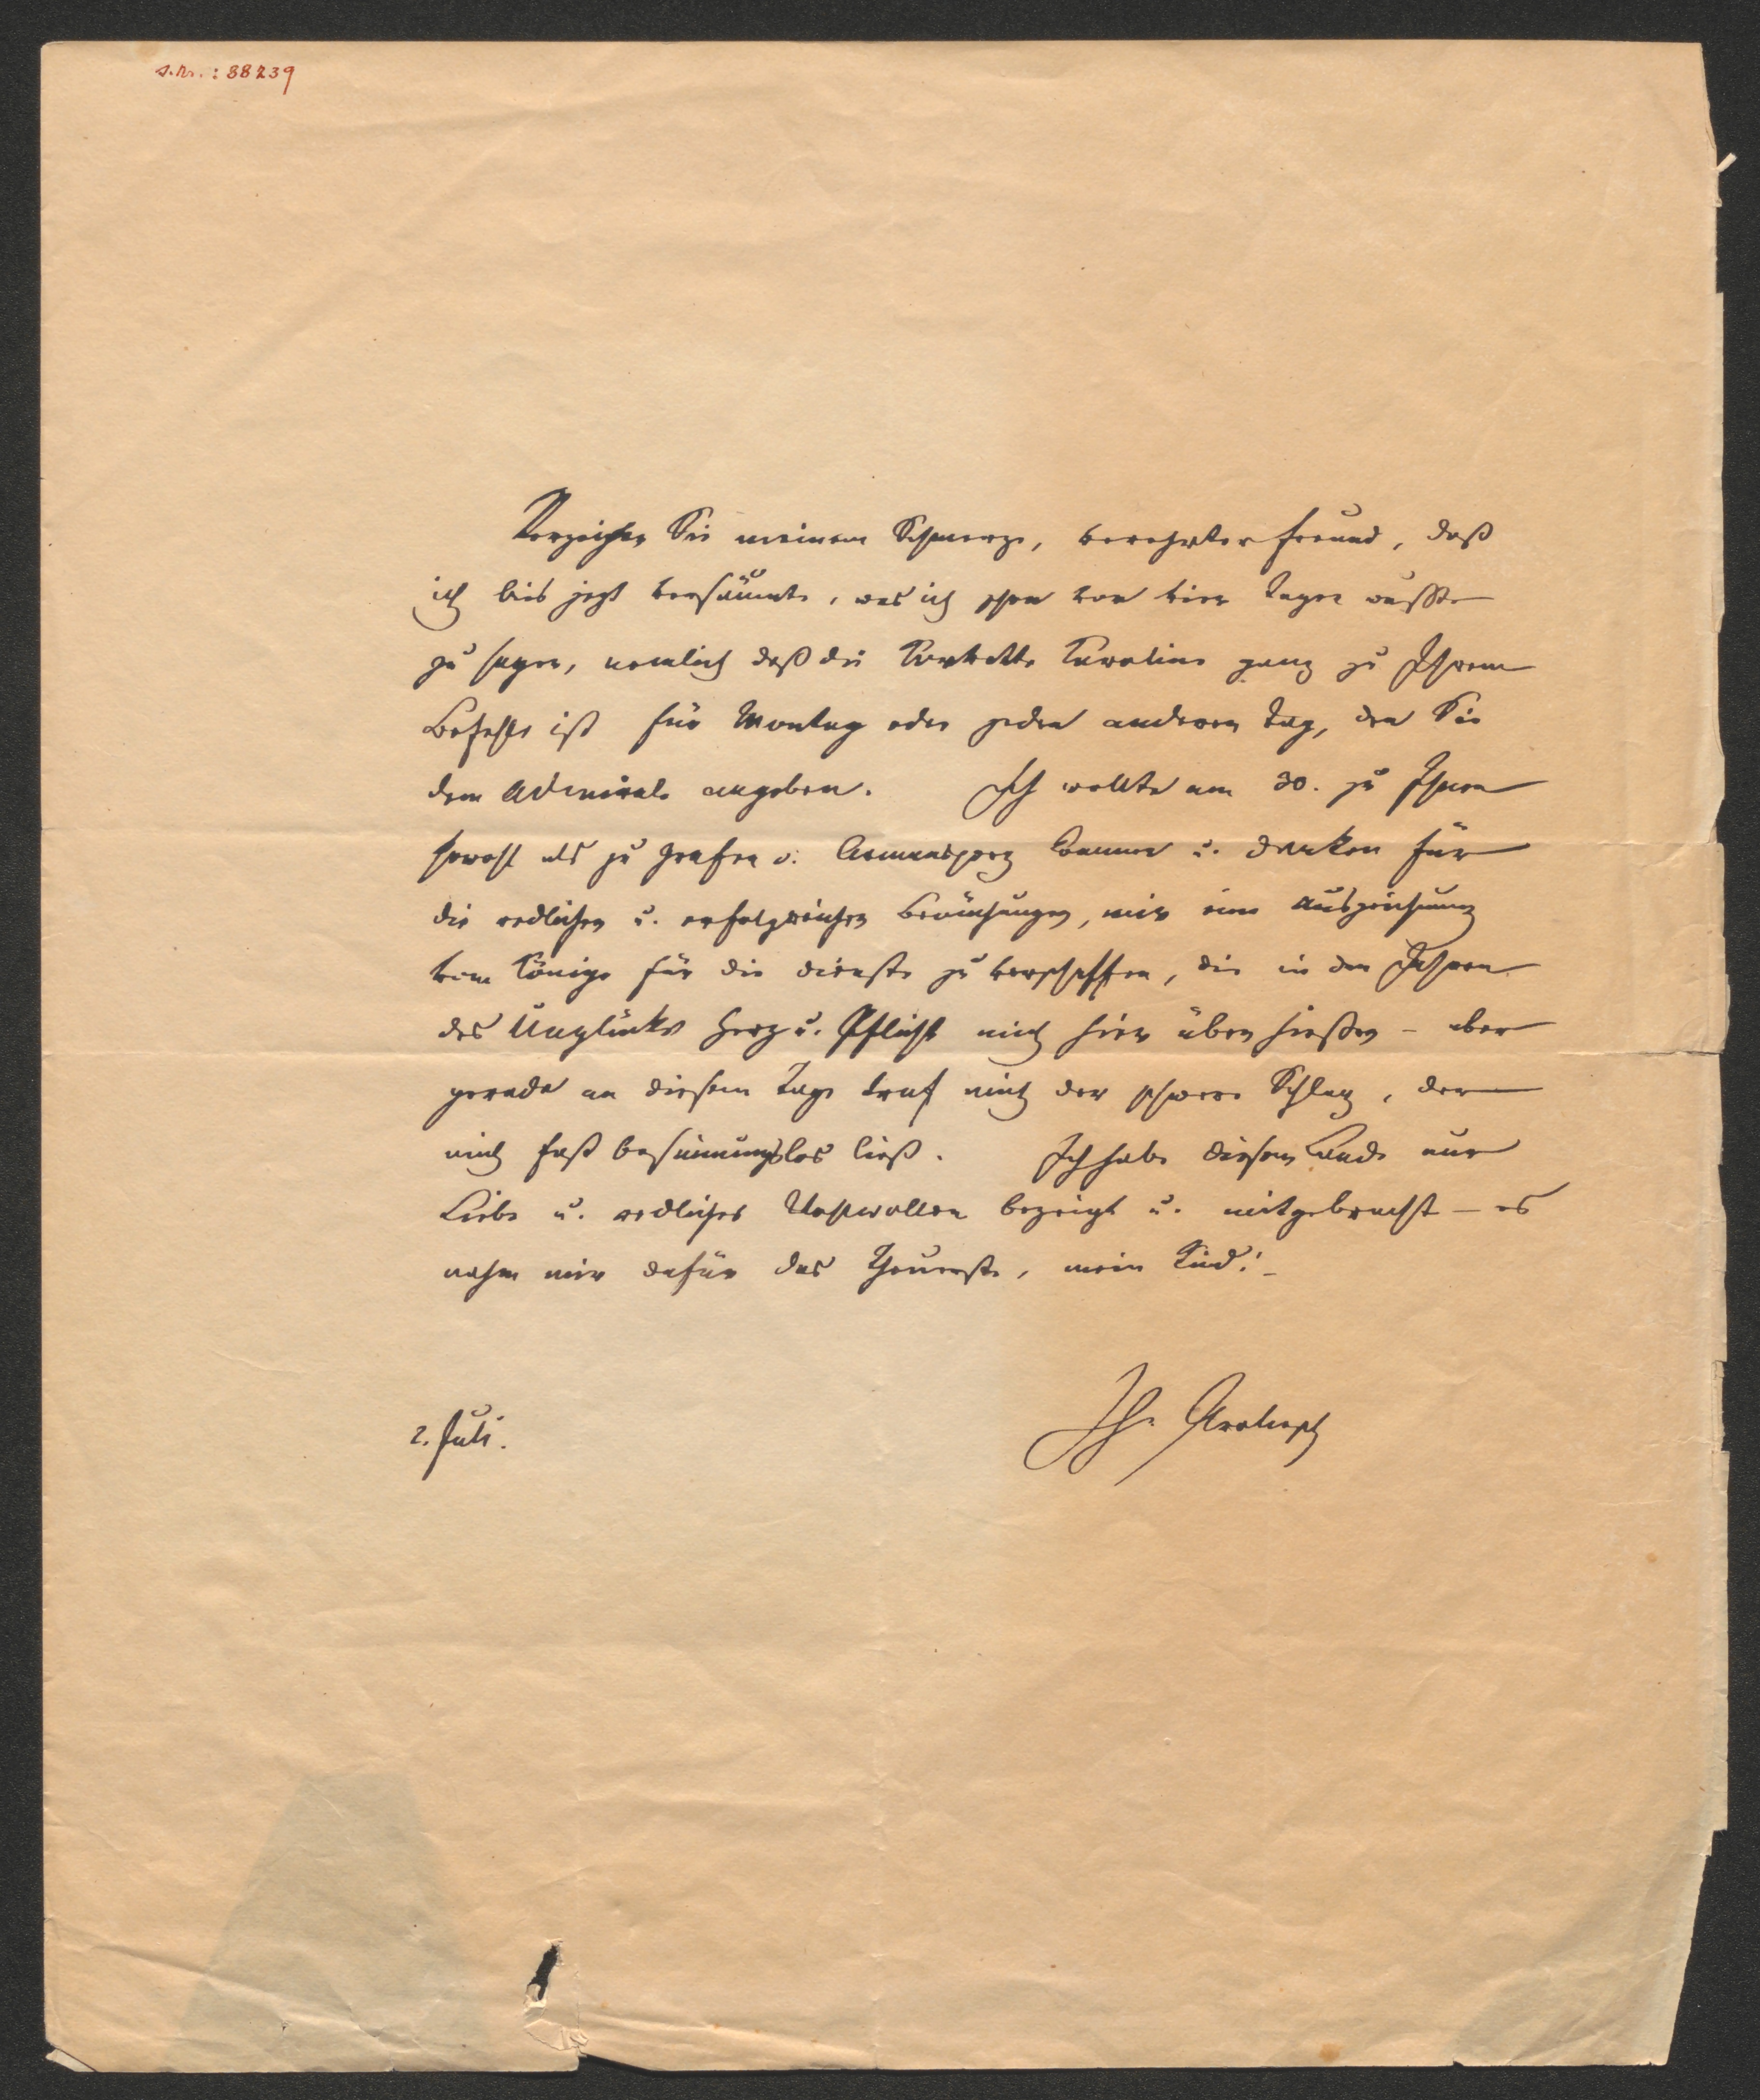 s. Nr.: 88239
Verzeihen Sie meinem Schmerze, verehrter Freund, daß
ich bis jetzt versäumte, was ich schon vor vier Tagen wußte
zu sagen, nemlich daß die Corvette Caroline ganz zu Ihrem
Befehle ist für Montag oder jeden anderen Tag, den Sie
dem Admirale angeben. Ich wollte am 30. zu Ihnen
sowohl als zu Grafen v. Armansperg kommen u. danken für
die redlichen u. erfolgreichen Bemühungen, mir eine Auszeichnung
vom Könige für die Dienste zu verschaffen, die in den Jahren
des Unglücks Herz u. Pflicht mich hier üben hießen – aber
gerade an diesem Tage traf mich der schwere Schlag, der
mich fast besinnungslos ließ. Ich habe diesem Lande nur
Liebe u. redliches Wohlwollen bezeigt u. mitgebracht – es
nahm mir dafür das Theuerste, mein Kind! –
2. Juli.
Ihr Prokesch